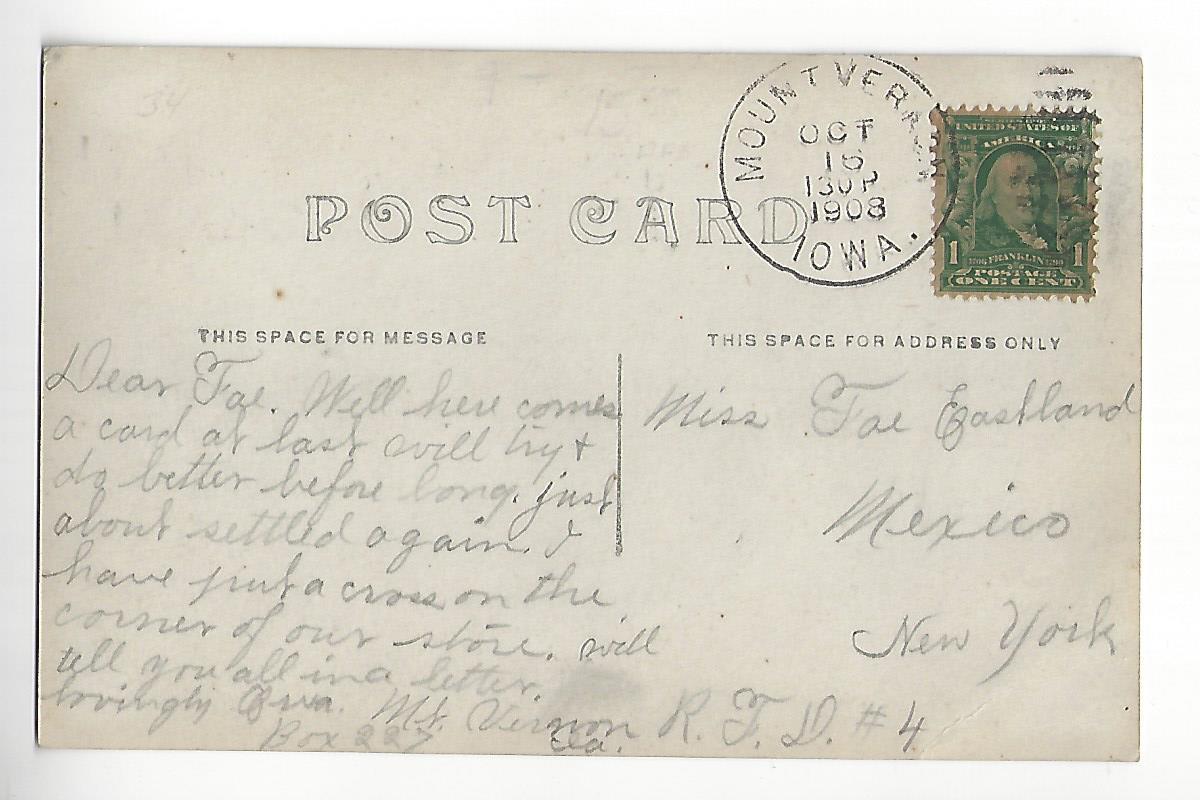 34
POST CARD
MOUNT VERNON
OCT
15
130P
1908
IOWA.
UNITED STATES OF
AMERICA
1 1
1706 FRANKLIN 1790
POSTAGE
ONE CENT
THIS SPACE FOR MESSAGE
Dear Fae. Well here comes
a card at last will try &
do better before long. just
about settled again. I
have put a cross on the
corner of our store. will
tell you all in a letter.
lovingly Eva. Mt. Vernon
Box 227 Ia.
THIS SPACE FOR ADDRESS ONLY
Miss Fae Eastland
Mexico
New York
R. F. D. # 4